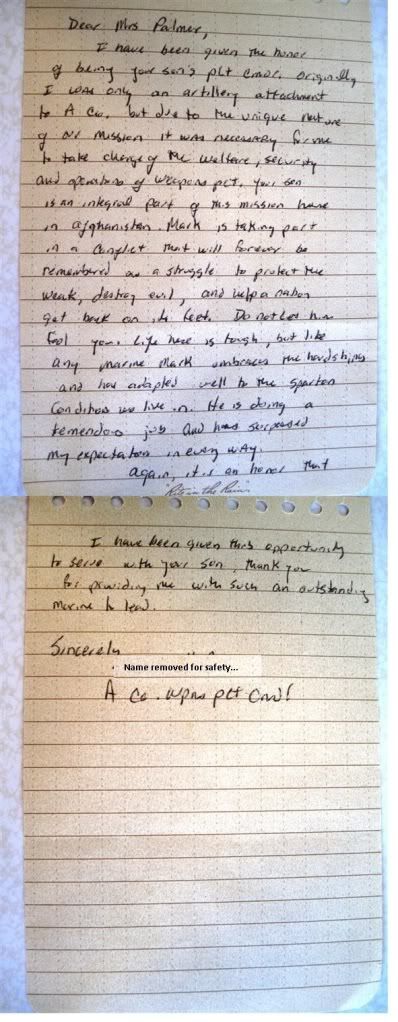 Dear Mrs Palmer,
I have been given the honor
of being your son's plt cmdr. Originally
I was only an artillery attachment
to A Co. but due to the unique nature
of our mission it was necessary for me
to take charge of the welfare, security
and operations of weapons plt. Your son
is an integral part of this mission here
in Afghanistan. Mark is taking part
in a conflict that will forever be
remembered as a struggle to protect the
weak, destroy evil, and help a nation
get back on its feet. Do not let him
fool you. Life here is tough, but like
any marine Mark embraces the hardships
and has adapted well to the spartan
conditions we live in. He is doing a
tremendous job and has surpassed
my expectation in every way.
Again, it is an honor that
"Rite in the Rain"
I have been given this opportunity
to serve with your son, thank you
for providing me with such an outstanding
marine to lead.
Sincerely
Name removed for safety...
A Co. Wpns plt Cmdr